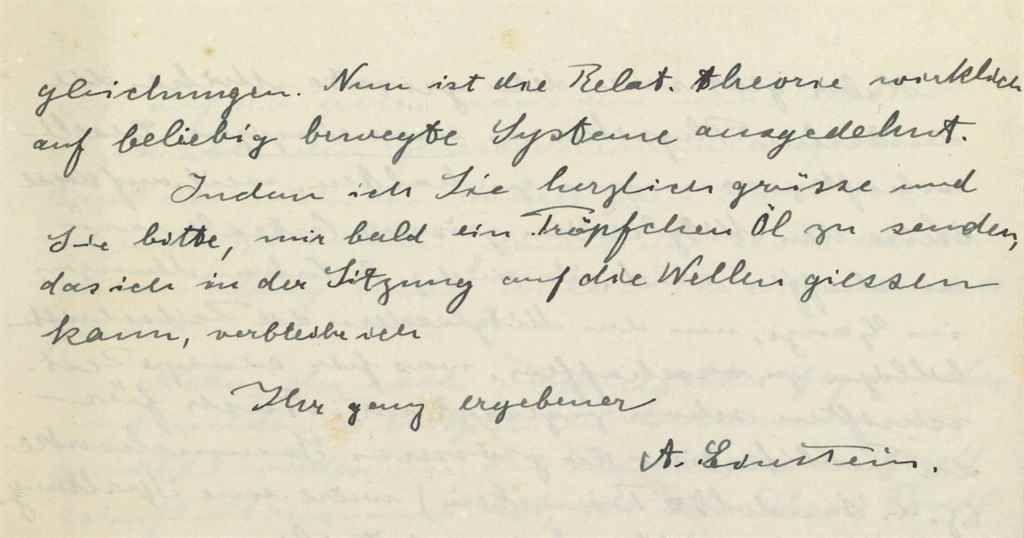 gleichungen. Nun ist die Relat. theorie wirklich
auf beliebig bewegte Systeme ausgedehnt.
Indem ich Sie herzlich grüsse und
Sie bitte, mir bald ein Tröpfchen Öl zu senden,
das ich in der Sitzung auf die Wellen giessen
kann, verbleibe ich
Ihr ganz ergebener
A. Einstein.